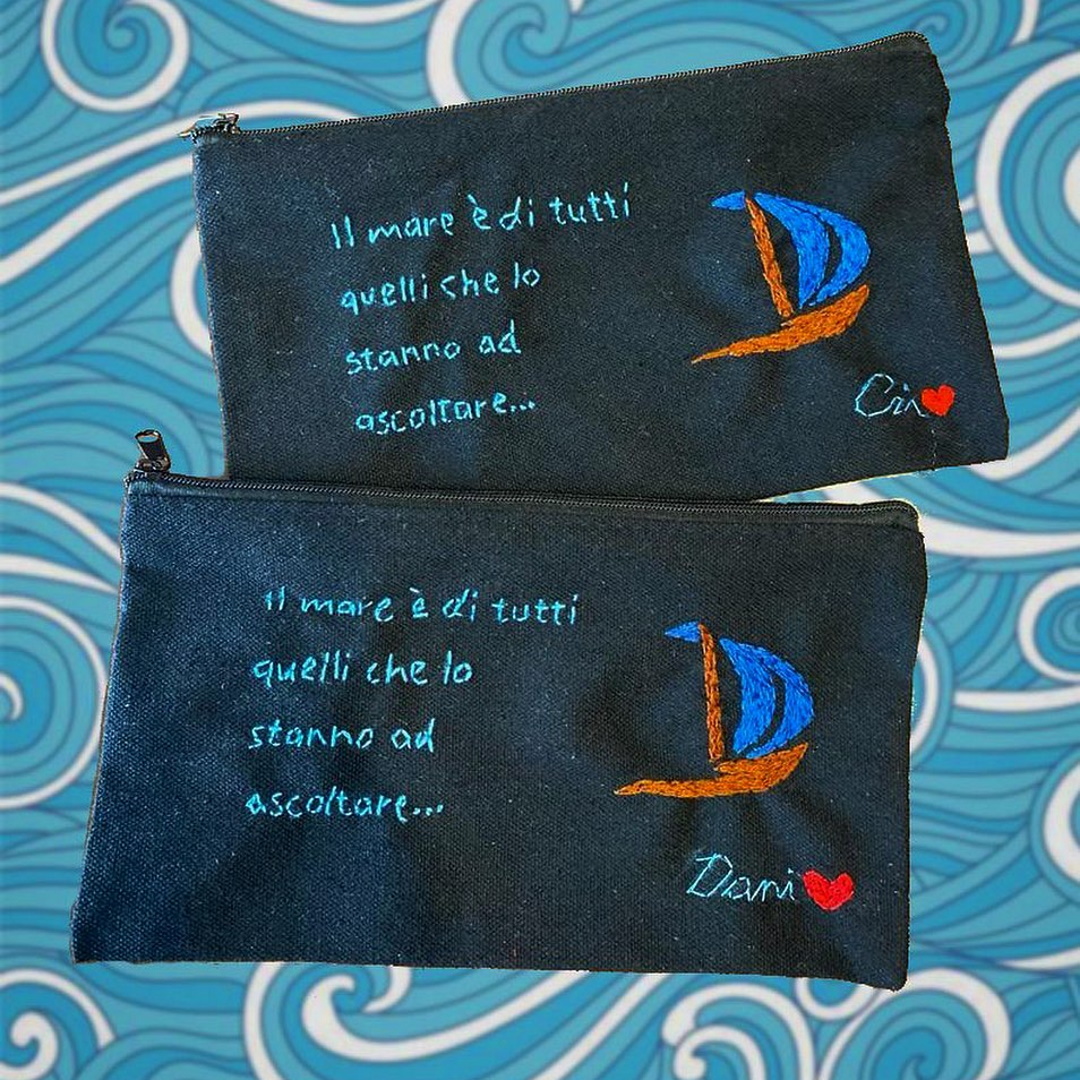 Il mare è di tutti
quelli che lo
stanno ad
ascoltare...
Cri
Il mare è di tutti
quelli che lo
stanno ad
ascoltare...
Dani